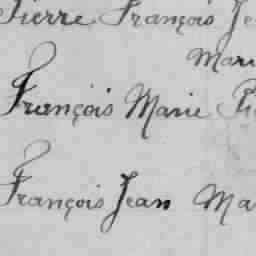 Pierre François Je
Mari
François Marie Pi
François Jean Ma